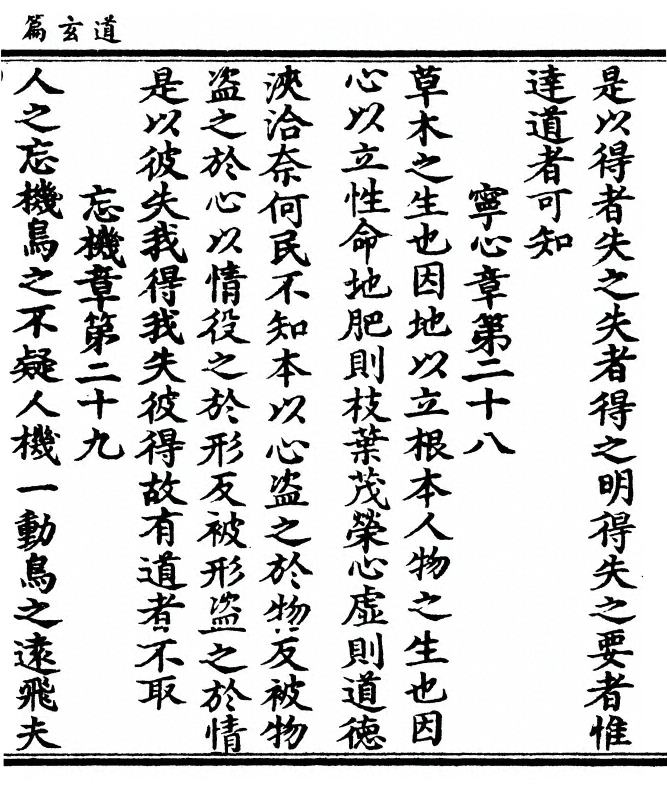 道玄篇
是以得者失之失者得之明得失之要者惟
達道者可知
寧心章第二十八
草木之生也因地以立根本人物之生也因
心以立性命地肥則枝葉茂榮心虛則道德
浹洽奈何民不知本以心盜之於物反被物
盜之於心以情役之於形反被形盜之於情
是以彼失我得我失彼得故有道者不取
忘機章第二十九
人之忘機鳥之不疑人機一動鳥之遠飛夫